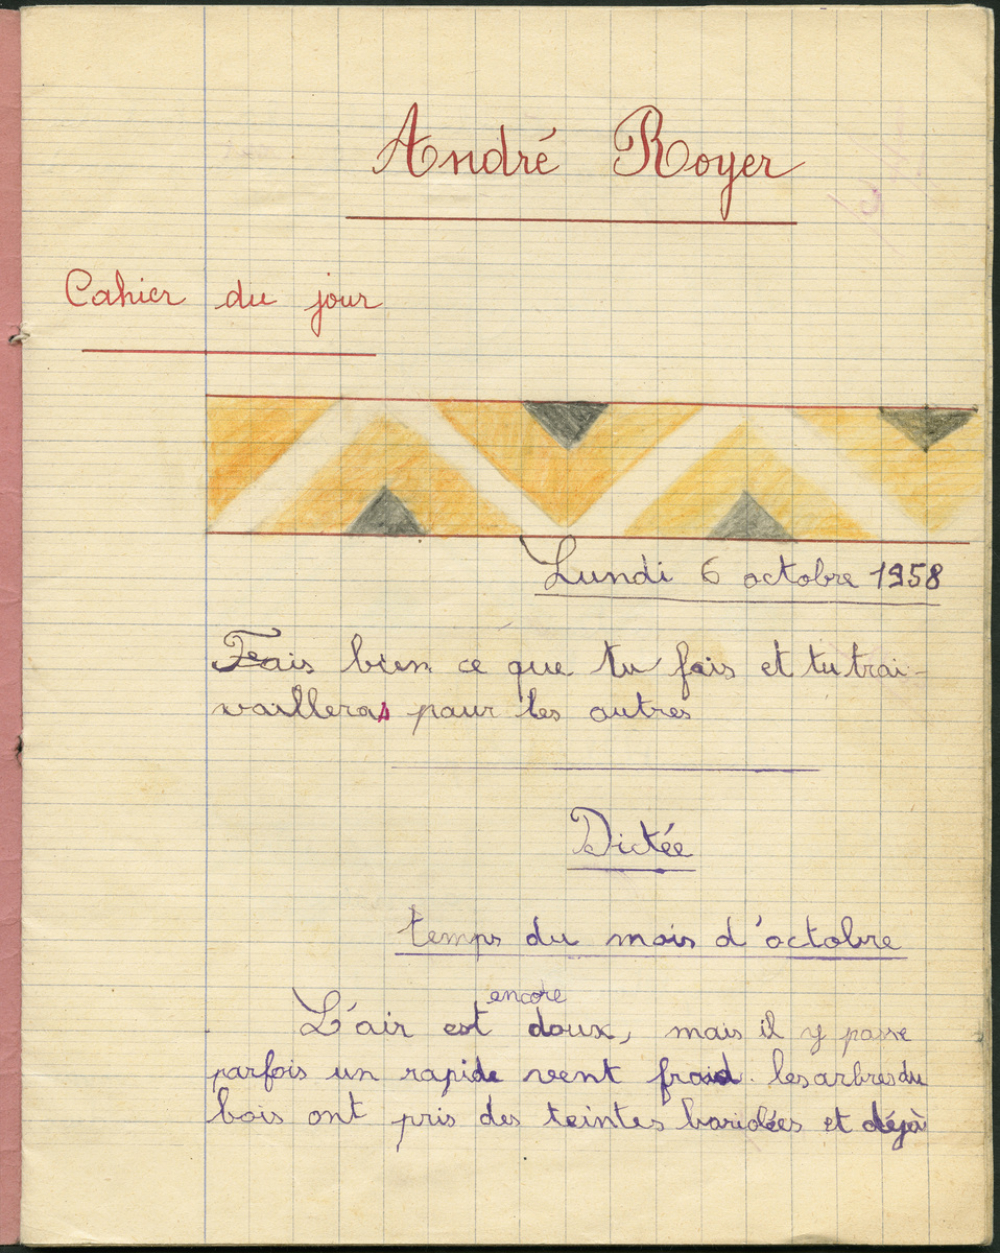 André Royer
Cahier du jour
Lundi 6 octobre 1958
Fais bien ce que tu fais et tu trai-
vailleras pour les autres
Dictée
temps du mois d'octobre
encore
L'air est doux, mais il y passe
parfois un rapide vent froid. les arbres du
bois ont pris des teintes bariolées et déjà